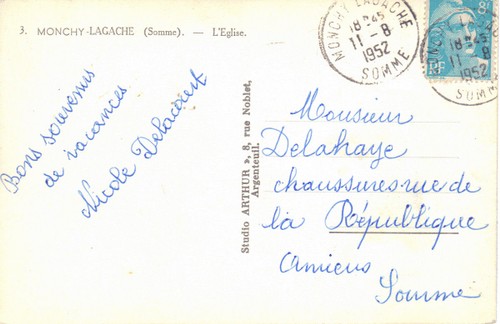 3. MONCHY-LAGACHE (Somme). — L'Eglise.
Bons souvenirs
de vacances
Nicole Delacourt
Studio ARTHUR », 8, rue Noblet,
Argenteuil.
MONCHY LAGACHE
18H45
11-8
1952
SOMME
18H45
11-8
1952
SOMME
Monsieur
Delahaye
chaussures rue de
la République
Amiens
Somme